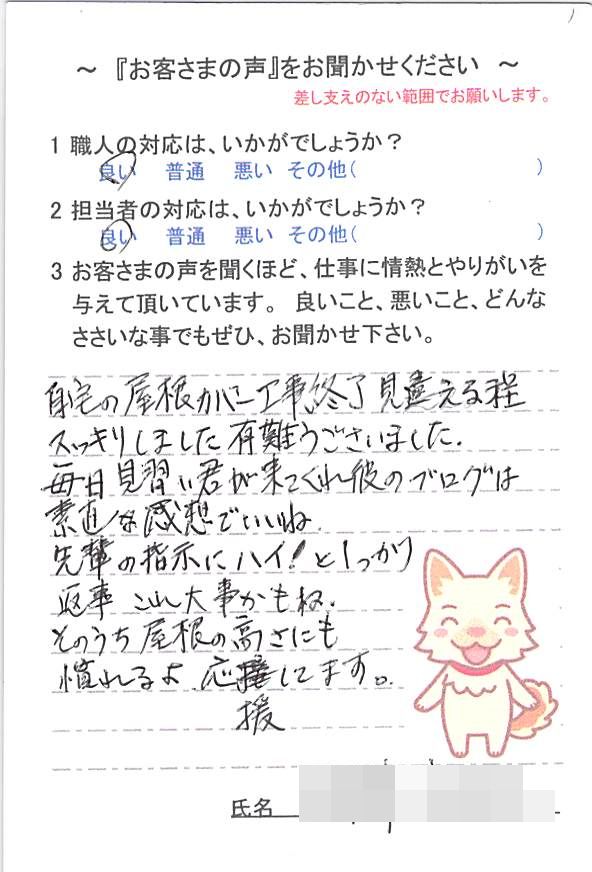 ～『お客さまの声』をお聞かせください ～
差し支えのない範囲でお願いします。
1 職人の対応は、いかがでしょうか？
良い 普通 悪い その他( )
2 担当者の対応は、いかがでしょうか？
良い 普通 悪い その他( )
3 お客さまの声を聞くほど、仕事に情熱とやりがいを
与えて頂いています。 良いこと、悪いこと、どんな
ささいな事でもぜひ、お聞かせ下さい。
自宅の屋根カバー工事終了見違える程
スッキリしました有難うございました.
毎日見習い君が来てくれ彼のブログは
素直な感想でいいね.
先輩の指示にハイ！としっかり
返事 これ大事かもね.
そのうち屋根の高さにも
慣れるよ.応援してます。
援
氏名